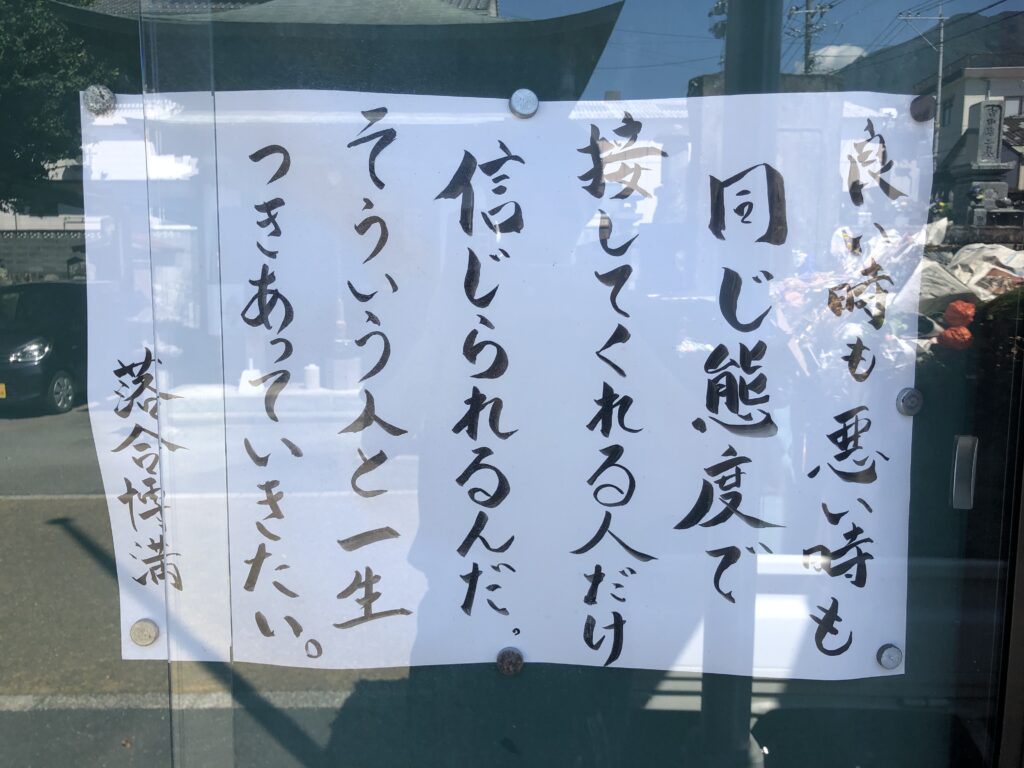 良い時も悪い時も
同じ態度で
接してくれる人だけ
信じられるんだ。
そういう人と一生
つきあっていきたい。
落合博満